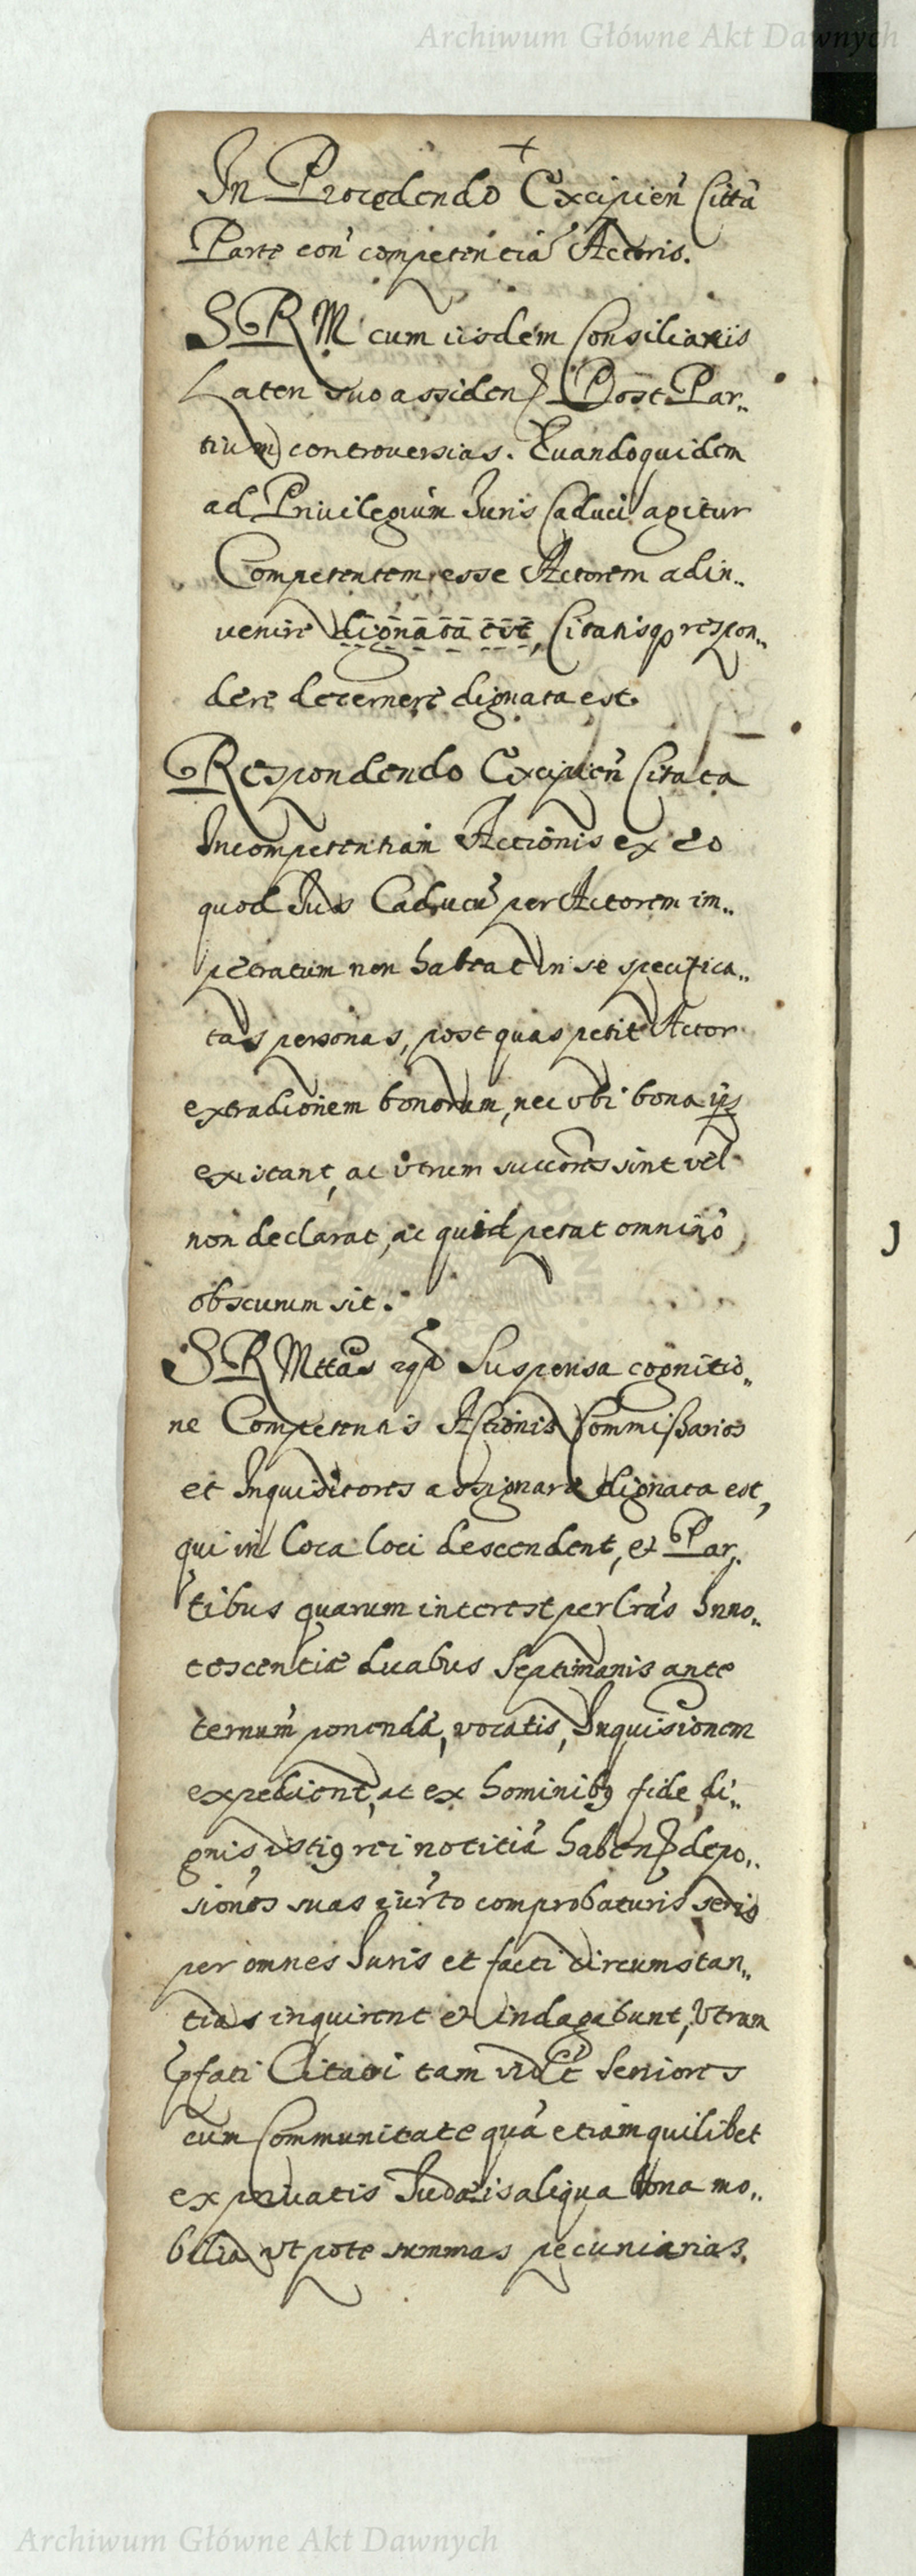 Archiwum Główne Akt Dawnych
+
In Procedendo Excipien̄ Citta
Parte con̄ competentia Actoris.
S R M cum iisdem Consiliariis
Laten suo assiden Post Par„
tium controversias. Quandoquidem
ad Privilegium Juris Caduci agitur
Competentem esse Actorem adin„
venire dignata est, Citatisq respon„
dere decernere dignata est.
Respondendo Excipien̄ Citata
Incompetentiam Actionis ex eo
quod Jus Caducū per Actorem im„
petratum non habeat in se specifica„
tas personas, post quas petit Actor
extradicionem bonorum, nec vbi bona ijs
existant, ac vtrum succores sint vel
non declarat, ac quid petat omnino
obscurum sit.
S R Mttas Suspensa cognitio„
ne Competentis Actionis Commissarios
et Inquisitores assignare dignata est,
qui in loca loci descendent, et Par„
tibus quarum interest per lras Inno„
tescentiæ duabus Septimanis ante
ternum ponenda, vocatis, Inquisionem
expedient, ac ex hominibq fide di„
gnis istiq rei notitiā haben depo„
siones suas iurto comprobaturis seris
per omnes Juris et facti circumstan„
tias inquirent et indagabunt, Vtrum
pfati Citati tam Seniores
cum Communitate quā etiam quilibet
ex privatis Judæis aliqua bona mo„
bilia vt pote summas pecuniarias.
J
Archiwum Główne Akt Dawnych